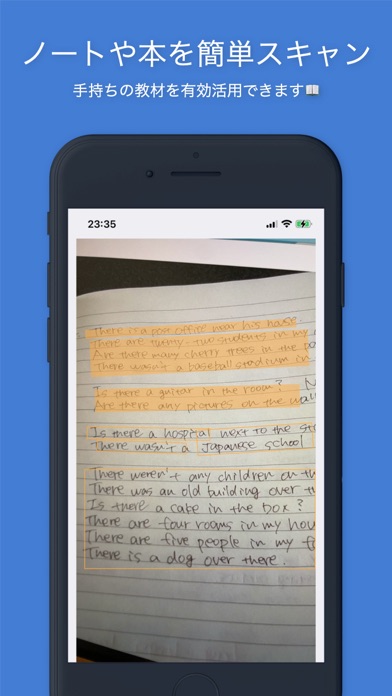 ノートや本を簡単スキャン
手持ちの教材を有効活用できます📖
23:35
There is a post office near his house.
There are thirty-two students in my
Are there many cherry trees in the
There wasn't a baseball stadium in
Is there a guitar in the room?
Are there any pictures on the wall
Is there a hospital next to the
There wasn't a Japanese school
There weren't any children on
There was an old building over
Is there a cake in the box?
There are four rooms in my
There are five people in my
There is a dog over there.